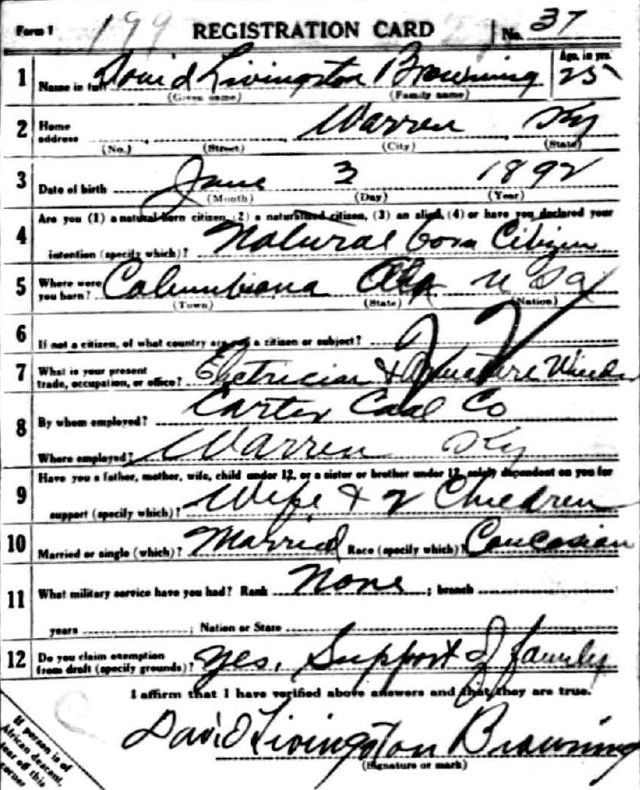 Form 1 199 REGISTRATION CARD No. 37
1 Name in full David Livingston Browning Age, in yrs. 25
(Given name) (Family name)
2 Home address Warren Ky
(No.) (Street) (City) (State)
3 Date of birth June 3 1892
(Month) (Day) (Year)
4 Are you (1) a natural born citizen, (2) a naturalized citizen, (3) an alien, (4) or have you declared your
intention (specify which)? Natural born Citizen
5 Where were you born? Columbiana Ala USA
(Town) (State) (Nation)
6 If not a citizen, of what country are you a citizen or subject?
7 What is your present trade, occupation, or office? Electrician & Armature Winder
8 By whom employed? Carter Coal Co
Where employed? Warren Ky
9 Have you a father, mother, wife, child under 12, or a sister or brother under 12, solely dependent on you for
support (specify which)? Wife & 2 Children
10 Married or single (which)? Married Race (specify which)? Caucasian
11 What military service have you had? Rank None ; branch
years ; Nation or State
12 Do you claim exemption from draft (specify grounds)? Yes, Support of family
I affirm that I have verified above answers and that they are true.
David Livingston Browning
(Signature or mark)
If person is of
African descent,
tear off this
corner